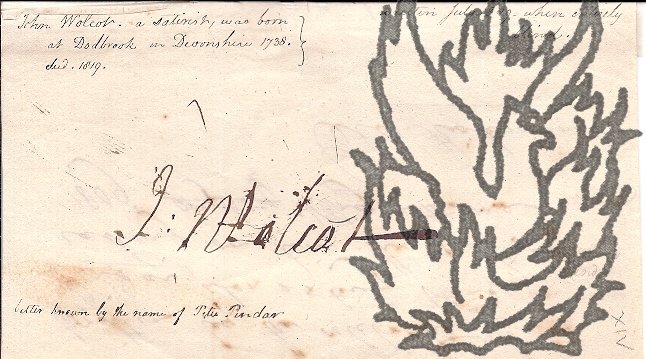 John Wolcot. a satirist, was born
at Dodbrook in Devonshire 1738.
died. 1819.
when entirely
J: Wolcot
better known by the name of Peter Pindar